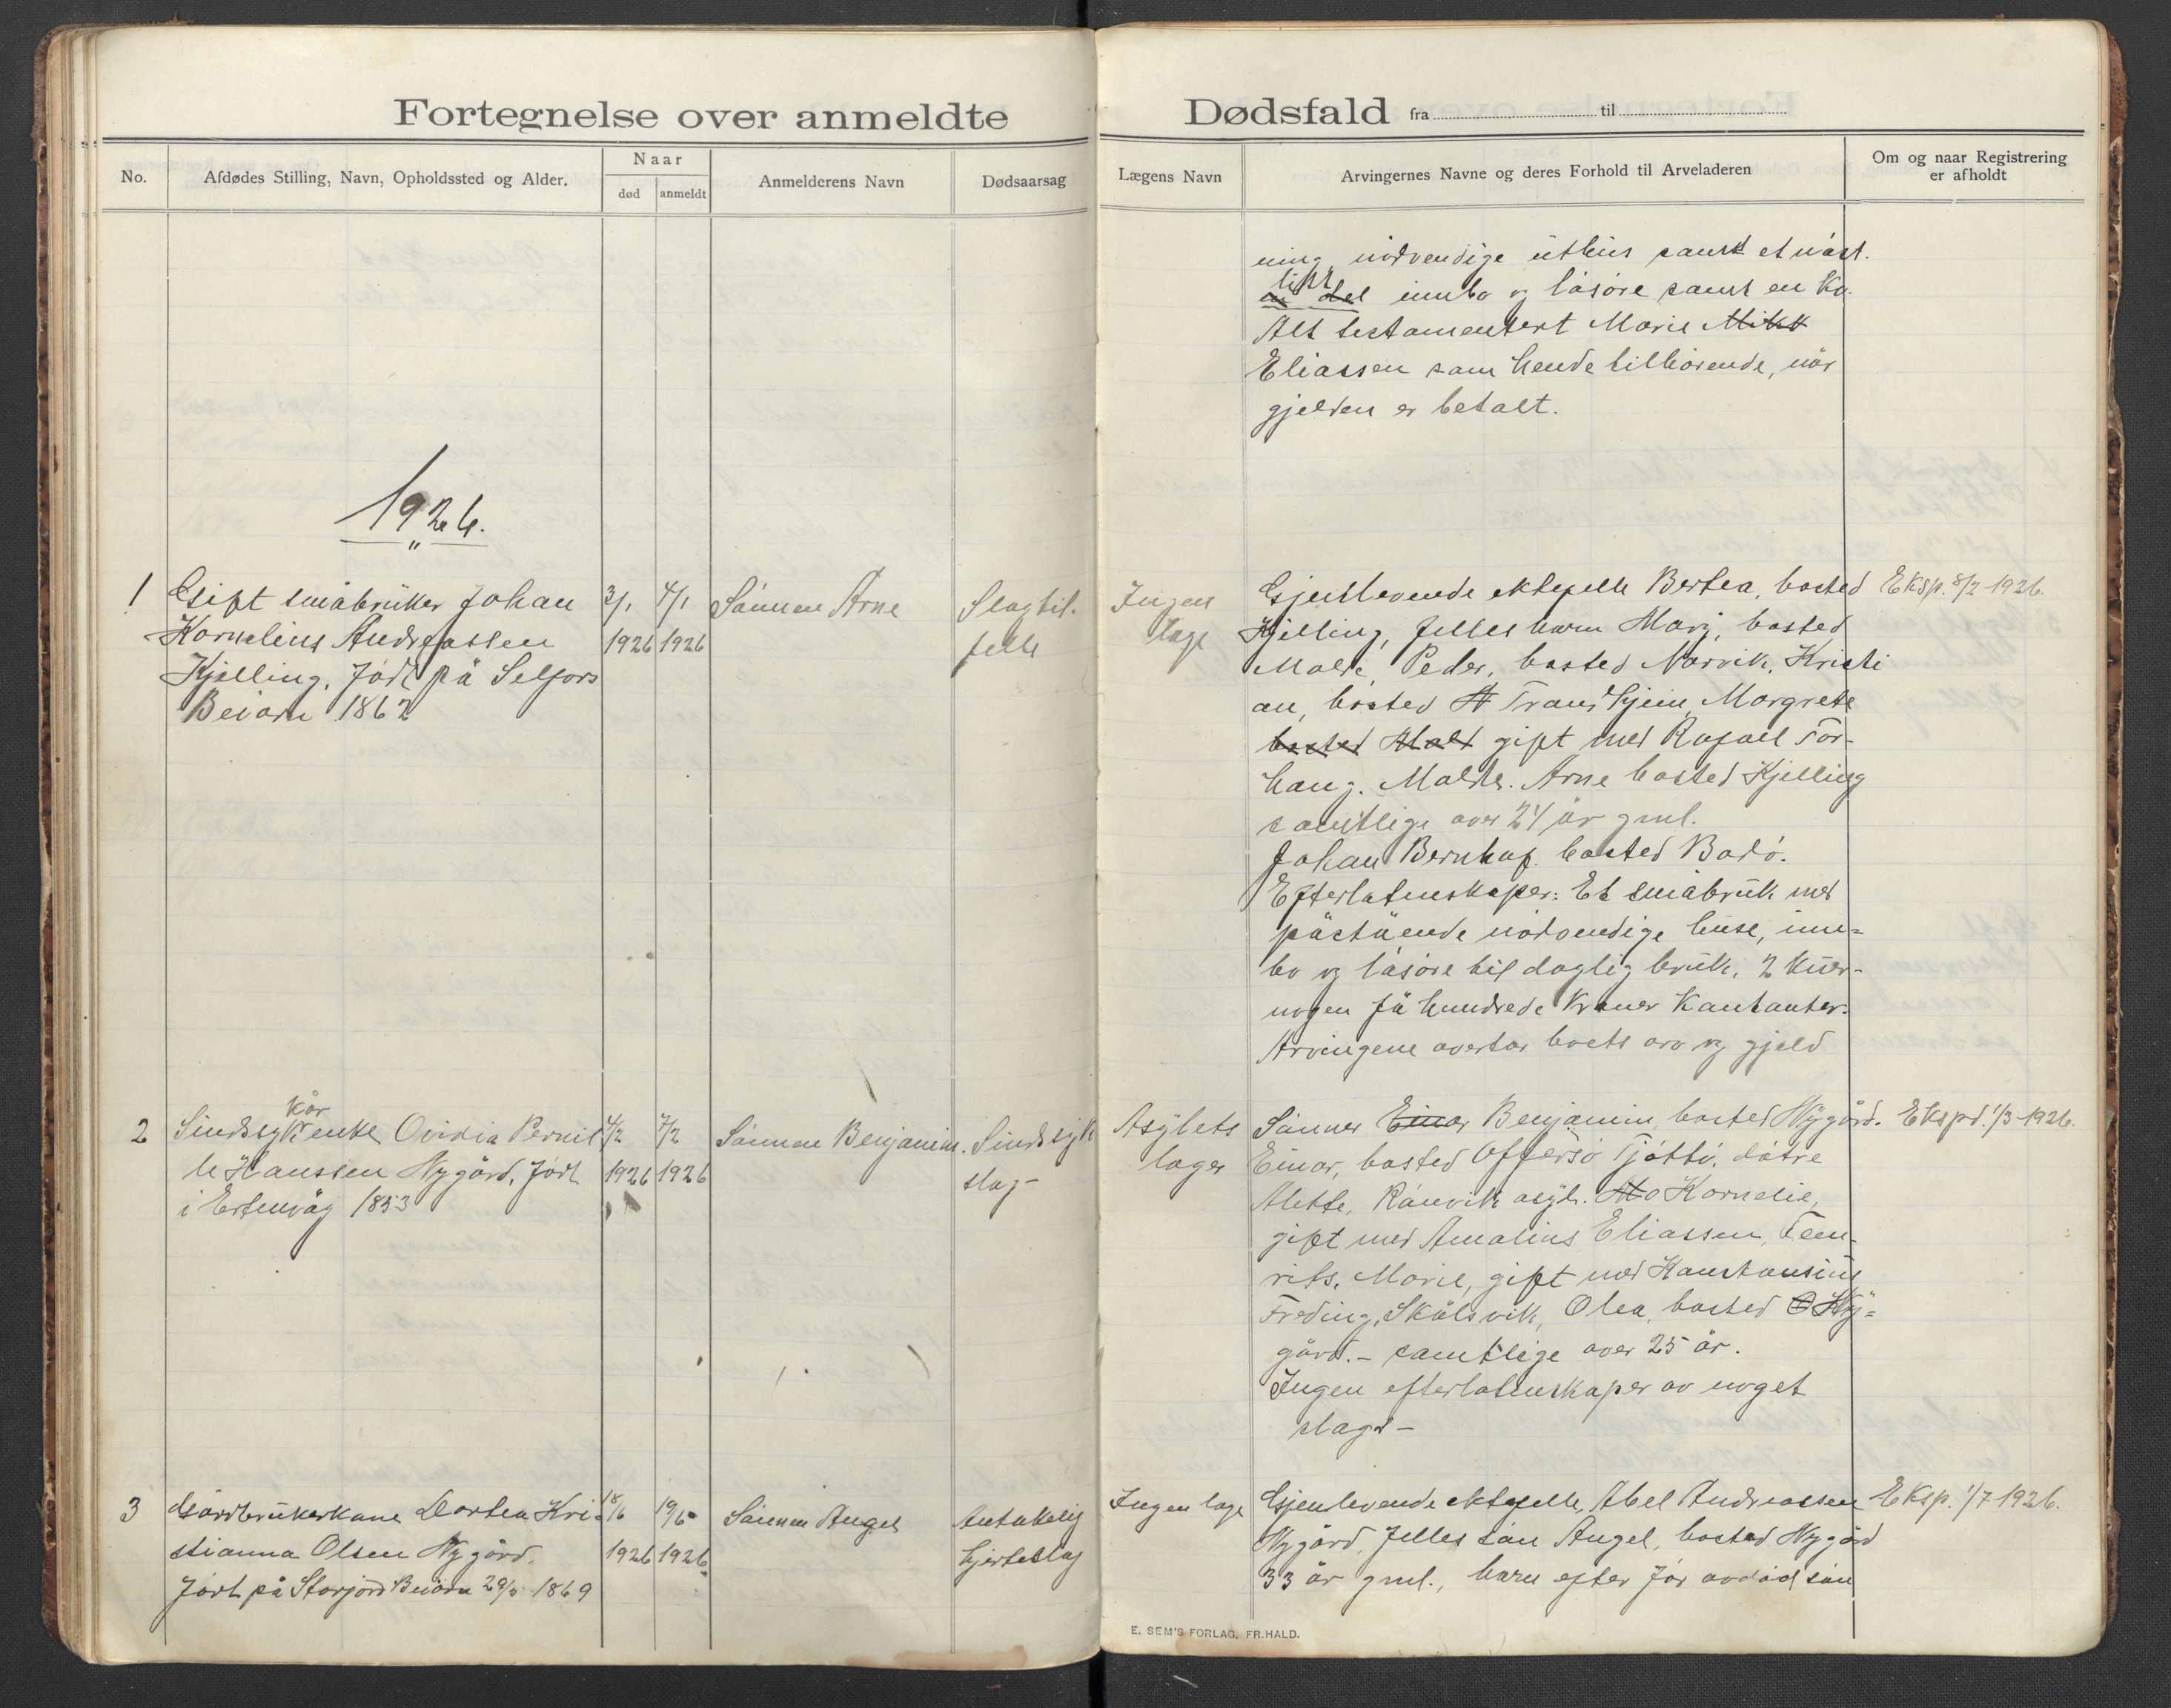 Fortegnelse over anmeldte
Dødsfald fra til
No.
Afdødes Stilling, Navn, Opholdssted og Alder.
Naar
død
anmeldt
Anmelderens Navn
Dødsaarsag
Lægens Navn
Arvingernes Navne og deres Forhold til Arveladeren
Om og naar Registrering
er afholdt
ning nödvendige úthús samt et nöst.
litt
en del innbo og lösöre samt en ku.
Alt testamentert Marie Mikk
Eliassen som hende tilhörende, når
gjelden er betalt.
1926.
1
Gift småbrúker Johan
Kornelius Andreassen
Kjelling. Född på Selfors
Beiarn 1862
3/1
1926
4/1
1926
Sönnen Arne
Slagtil-
felle
Ingen
lege
Gjenlevende ektefelle Bertea, bosted
Kjelling, Felles barn Marj, bosted
Molde, Peder, bosted Narvik, Kristi
an, bosted Trondhjem, Margrete
bosted Mold gift med Rafael Tor-
haug. Molde. Arne bosted Kjelling
samtlige over 21 år gml.
Johan Bernhof. bosted Bodö.
Efterlatenskaper: Et småbrúk med
påstående nödvendige húse, inn-
bo og lösöre til daglig brúk, 2 kúer-
nogen få hundrede kroner kontanter.
Arvingene overtar boets arv og gjeld
Eksp. 8/2-1926.
2
kår
Sindsyk enke Ovidia Pernil
le Hanssen Nygård. Född
i Ertenvåg 1853
4/2
1926
7/2
1926
Sönnen Benjamin.
Sindssyk
slag-
Asýlets
leger
Sönner Einar Benjamin, bosted Nýgård.
Einar, bosted Offersö Tjöttö. döttre
Alette, Rönvik asýl. Mo Kornelie,
gift med Amalius Eliassen, Fem-
ris. Marie, gift med Konstansius
Freding, Skålsvik, Olea, bosted Ný-
gård.- samtlige over 25 år.
Ingen efterlatenskaper av noget
slags-
Ekspd. 1/3-1926.
3
Gårdbrúkerkone Dortea Kri-
stianna Olsen Nygård.
Född på Storjord Beiarn 29/5 1869
18/6
1926
19/6
1926
Sönnen Angel
Antakelig
hjerteslag
Ingen lege
Gjenlevende ektefelle, Abel Andreassen
Nygård, Felles sön Angel, bosted Nygård
33 år gml., barn efter för avdöd sön
Eksp. 1/7-1926.
E. SEM'S FORLAG, FR.HALD.